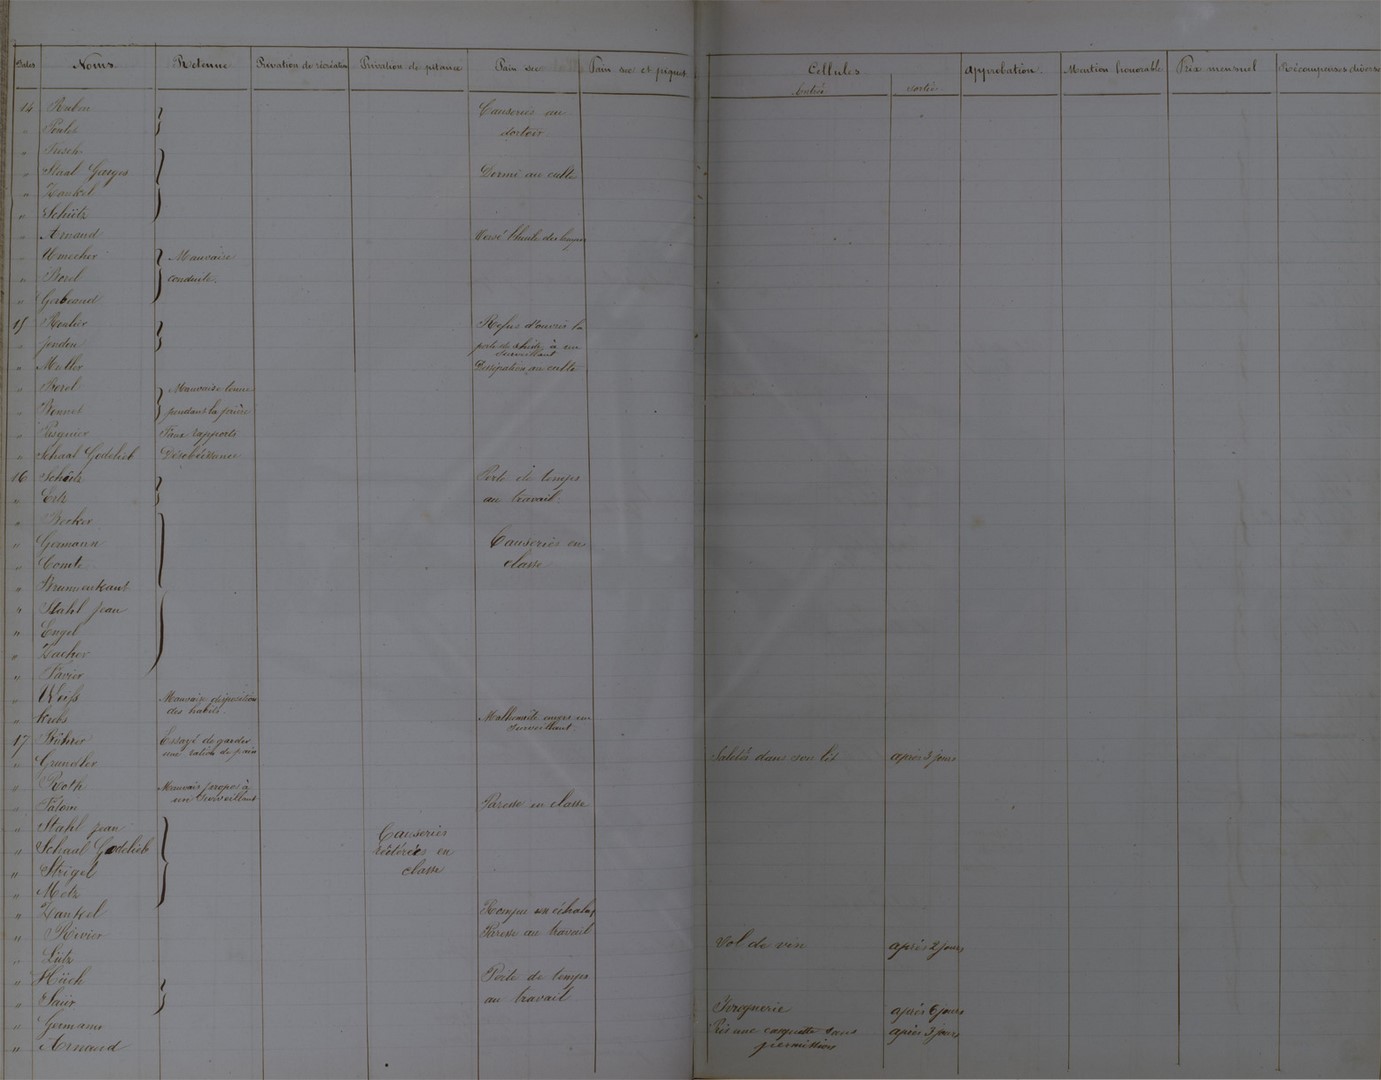 Dates Noms Retenue Privation de récréation Privation de pitance Pain sec Pain sec et piquet Cellules Approbation Mention honorable Prix mensuel Récompenses diverses
Entrée Sortie
14 Ruben Causeries au
" dortoir
"
" Staal Georges Dormi au culte
" Zankel
" Schütz
" Arnaud Versé l'huile des lampes
" Umecher Mauvaise
" Borel conduite.
" Gerbeaud
15 Routier Refus d'ouvrir la
" Jenden porte de à un
surveillant
" Muller Dissipation au culte
" Borel Mauvaise tenue
" Bonnet pendant la prière
" Pasquier Faux rapports
" Schaal Godelieb Désobéissance
16 Schütz Perte de temps
" Ertz au travail
" Becker
" Germann Causeries en
" Comte classe
" Brunnenkant
" Stahl Jean
" Engel
" Zacher
" Pavier
" Weiß Mauvaise disposition
des habits.
" Krebs Malhonnête envers un
surveillant
17 Bührer Essayé de garder
une ration de pain
" Grundler Saletés dans son lit après 3 jours
" Roth Mauvais propos à
un surveillant
" Salom Paresse en classe
" Stahl Jean Causeries
" Schaal Godelieb réitérées en
" Strigel classe
" Metz
" Zankel Rompu un échalas
" Rivier Paresse au travail
" Lutz Vol de vin après 2 jours
" Hüch Perte de temps
" Saür au travail
" Germann Ivrognerie après 6 jours
" Arnaud Pris une casquette sans après 3 jours
permission